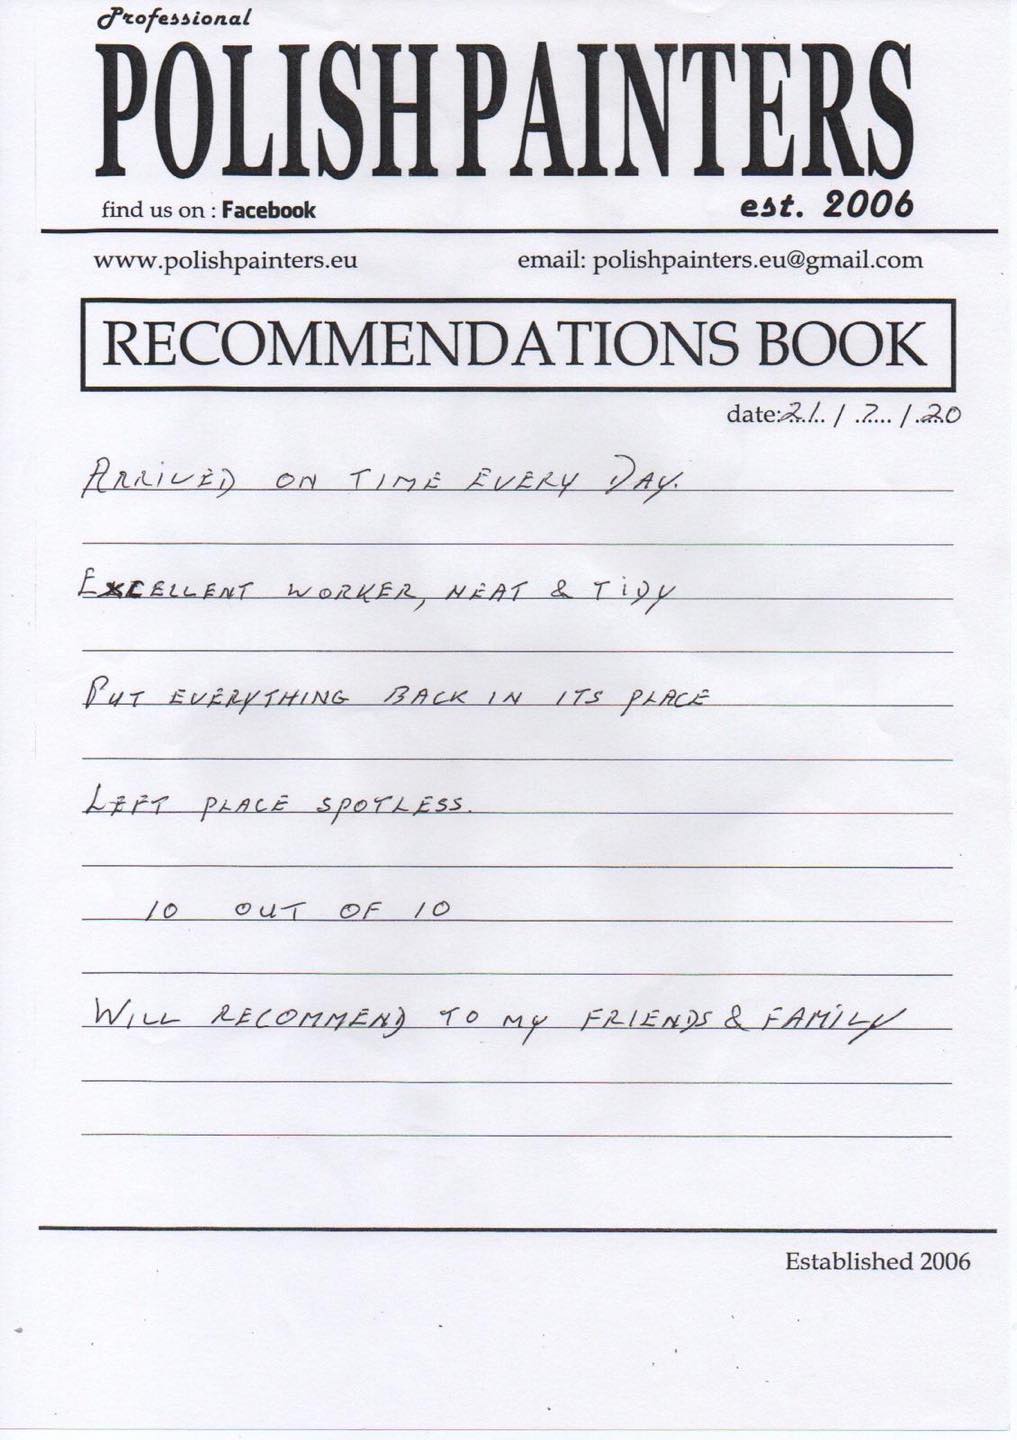 Professional
POLISH PAINTERS
find us on : Facebook
est. 2006
www.polishpainters.eu
email: polishpainters.eu@gmail.com
RECOMMENDATIONS BOOK
date: 21 / 7 / 20
ARRIVED ON TIME EVERY DAY.
EXCELLENT WORKER, NEAT & TIDY
PUT EVERYTHING BACK IN ITS PLACE
LEFT PLACE SPOTLESS.
10 OUT OF 10
WILL RECOMMEND TO MY FRIENDS & FAMILY
Established 2006